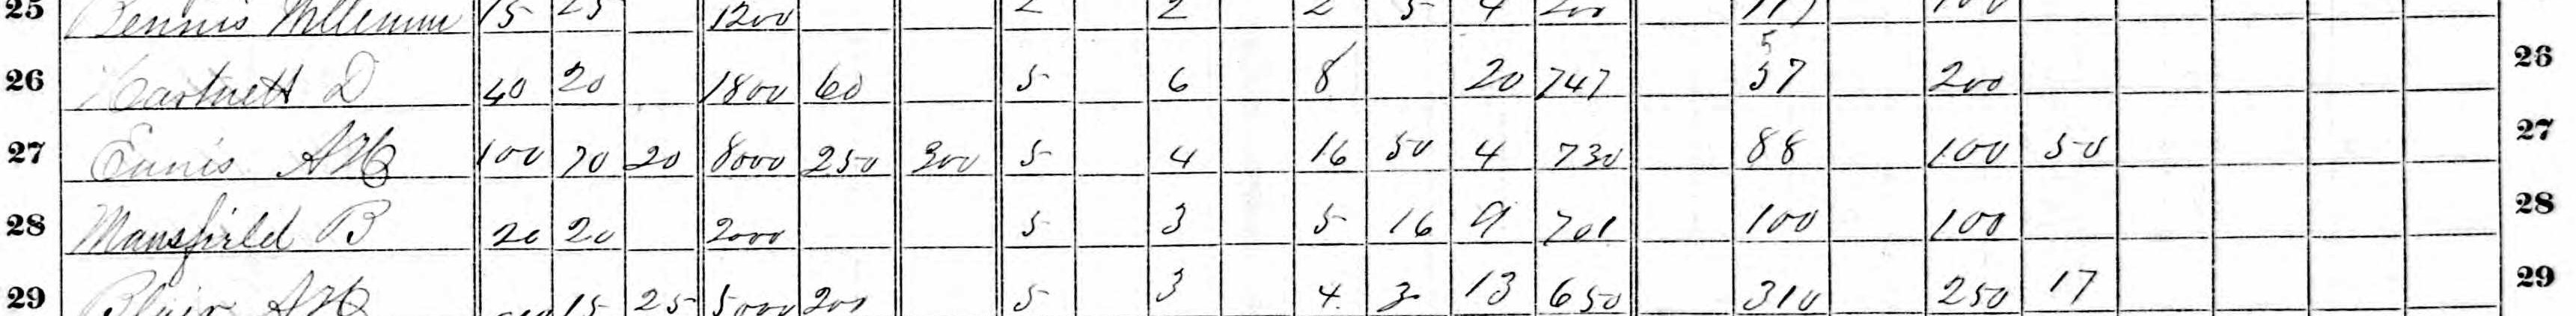 25 Dennis 15 25 1200 2 2 2 5 4 200 100
26 Hartnett D 40 20 1800 60 5 6 8 20 747 5 37 200 26
27 Ennis 100 70 20 8000 250 300 5 4 16 50 4 730 88 100 50 27
28 Mansfield B 20 20 2000 5 3 5 16 9 701 100 100 28
29 Blair 15 25 5000 200 5 3 4 3 13 650 310 250 17 29